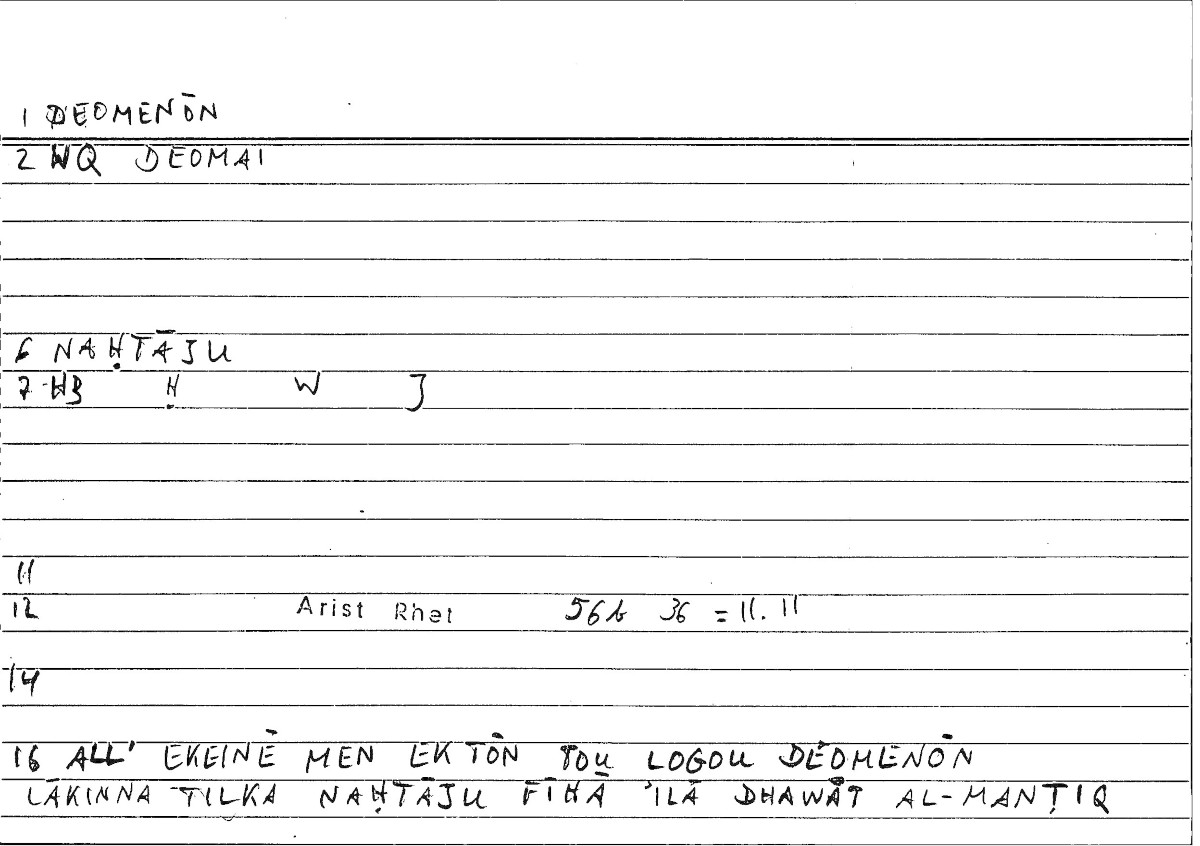 1 DEOMENŌN
2 WQ DEOMAI
6 NAḤTĀJU
7 HB Ḥ W J
11
12 Arist Rhet 56b 36 = 11. 11
14
16 ALL' EKEINĒ MEN EK TŌN TOU LOGOU DEOMENŌN
LĀKINNA TILKA NAḤTĀJU FĪHĀ 'ILĀ DHAWĀT AL-MANṬIQ